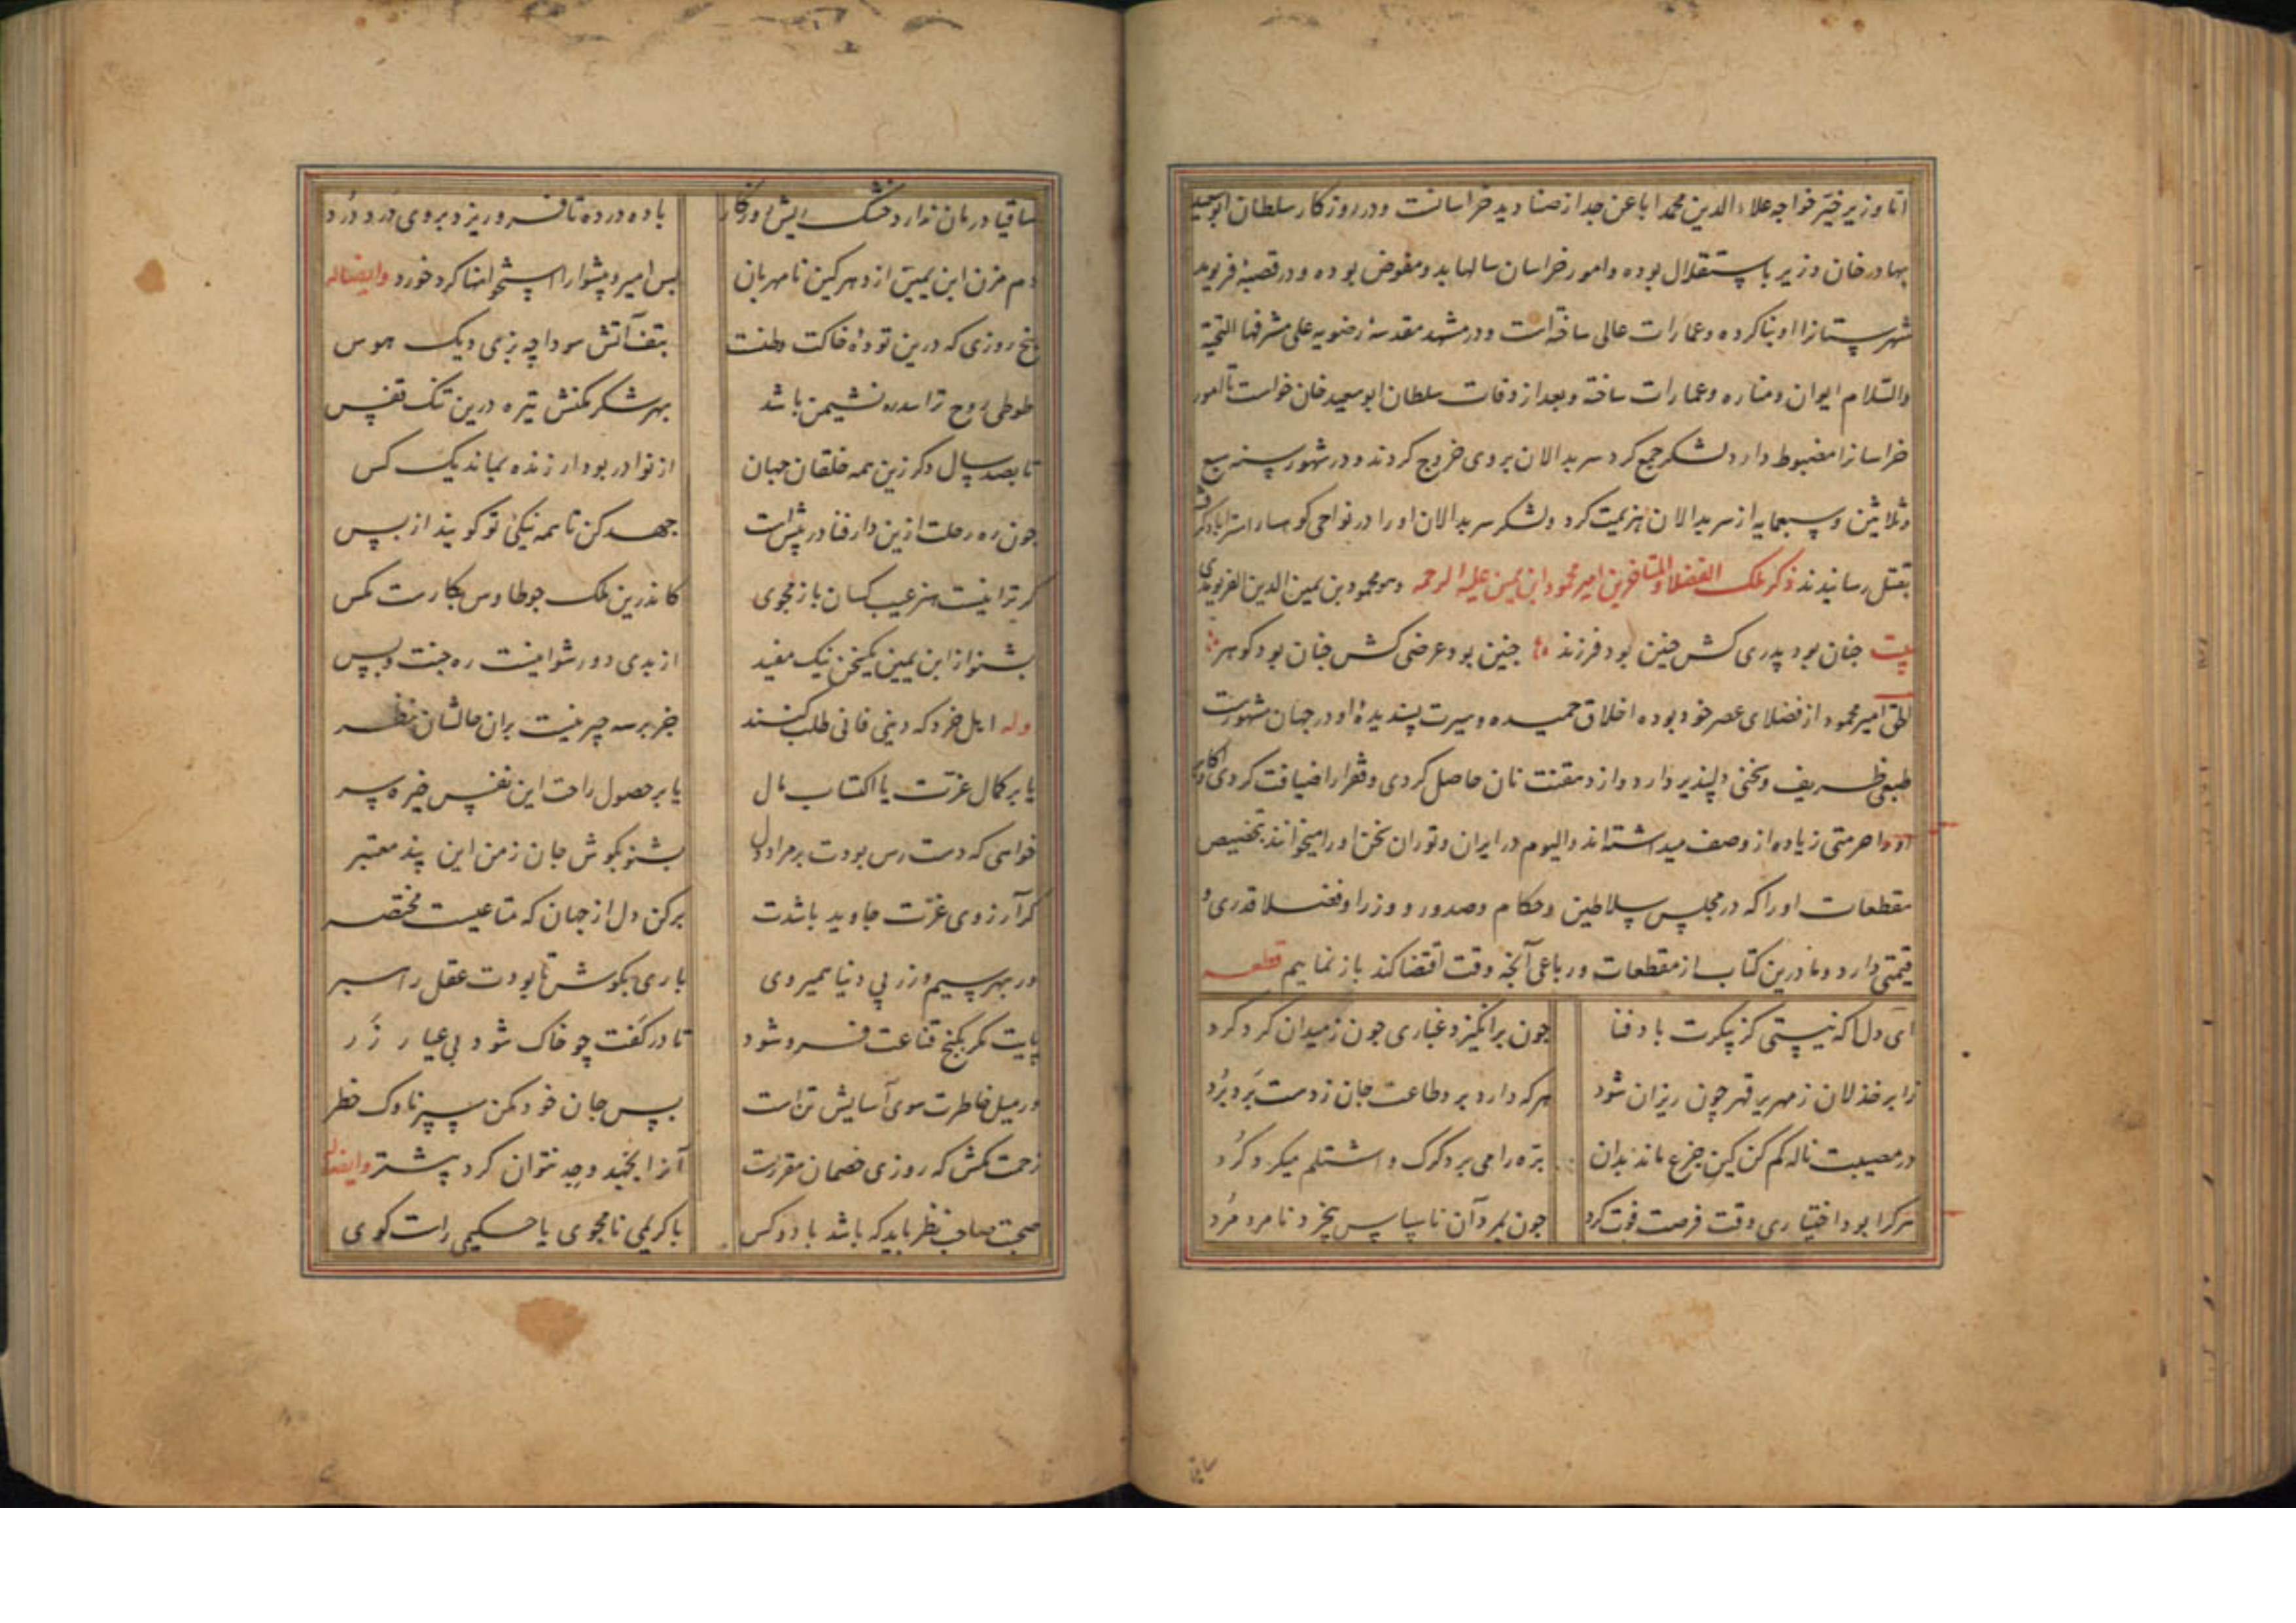 اما وزیر خیّر خواجه علاء الدین محمد ابا عن جد از صنادید خراسانست و در روزکار سلطان ابوسعید
بهادر خان وزیر باستقلال بوده و امور خراسان سالها بدو مفوض بوده و در قصبهٔ فریومد
شهرستانرا او بنا کرده و عمارات عالی ساخته است و در مشهد مقدسهٔ رضویه علی مشرفها التحیة
والسّلام ایوان و مناره و عمارات ساخته و بعد از وفات سلطان ابوسعید خان خواست تا امور
خراسانرا مضبوط دارد لشکر جمع کرد سربدالان بروی خروج کردند و در شهور سنه سبع
و ثلاثین و سبعمایه از سربدالان هزیمت کرد و لشکر سربدالان او را در نواحی کوهسار استراباد گرفته
بقتل رسانیدند ذکر ملک الفضلا والمتاخرین امیر محمود ابن یمین علیه الرحمه وهو محمود بن یمین الدین الفریومدی
بیت جنان بود پدری کش جنین بود فرزند جنین بود عرضی کش جنان بود کوهر
الحق امیر محمود از فضلای عصر خود بوده اخلاق حمیده و سیرت پسندیدهٔ او در جهان مشهورست
طبعی ظریف و سخنی دلپذیر دارد و از دهقنت نان حاصل کردی و فقرا را ضیافت کردی اکابر
او را حرمتی زیاده از وصف میداشته‌اند و الیوم در ایران و توران سخن او را میخوانند بتخصیص
مقطعات او را که در مجلس سلاطین و حکام و صدور و وزرا و فضلا قدری و
قیمتی دارد و ما درین کتاب از مقطعات و رباعی آنجه وقت اقتضا کند باز نماییم قطعه
ای دل اکه نیستی کز پیکرت باد فنا جون برانکیزد غباری جون ز میدان کرد کرد
زابر خذلان زمهریر قهر چون ریزان شود هرکه دارد برد طاعت جان ز دست برد برد
در مصیبت ناله کم کن کین جزع ماند بدان بره را می برد کرک و اشتلم میکرد کرد
هرکرا بود اختیاری وقت فرصت فوت کرد جون بمرد آن ناسپاس بیخرد نامرد مرد
ساقیا درمان ندارد خستک ریش روزکار باده درده تا فرو ریزد بروی درد درد
دم مزن ابن یمین از دهر کین نامهربان بس امیر و پیشوا را استخوانها کرد خورد وایضا له
پنج روزی که درین تودهٔ خاکت وطنت بتف آتش سودا چه پزی دیک هوس
طوطی روح ترا سدره نشیمن باشد بهر شکر مکنش تیره درین تنک قفس
تا بصد سال دکر زین همه خلقان جهان از نوادر بود ار زنده بماند یک کس
جون ره رحلت ازین دار فنا در پیش است جهد کن تا همه نیکی تو کویند از پس
کر ترا نیست هنر عیب کسان باز مجوی کاندرین ملک جو طاوس بکارست مکس
بشنو از ابن یمین یکسخن نیک مفید از بدی دور شو اینست ره جنت و بس
وله اهل خرد که دینی فانی طلب کنند جز بر سه چیز نیست بران حالشان نظر
یا بر کمال عزتست یا اکتساب مال یا بر حصول راحت این نفس خیره سر
خواهی که دست رس بودت بر مراد دل بشنو بکوش جان ز من این پند معتبر
کر آرزوی عزت جاوید باشدت برکن دل از جهان که متاعیست مختصر
ور بهر سیم و زر پی دنیا همیروی باری بکوش تا بودت عقل راهبر
پایت مکر بکنج قناعت فرو شود تا در کفت چو خاک شود بی عیار زر
ور میل خاطرت سوی آسایش تن است بس جان خود مکن سپر ناوک خطر
زحمت مکش که روزی خصمان مقررست آنرا بجد و جهد نتوان کرد بیشتر وایضا له
صحبت صاحب نظر باید که باشد با دو کس با کریمی نامجوی یا حکیمی راست کوی